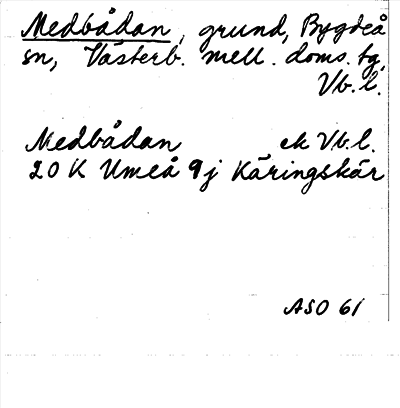 Medbådan, grund, Bygdeå
sn, Västerb. mell. doms. tg,
Vb. l.
Medbådan ek Vb. l.
20 K Umeå 9j Käringskär
ASO 61